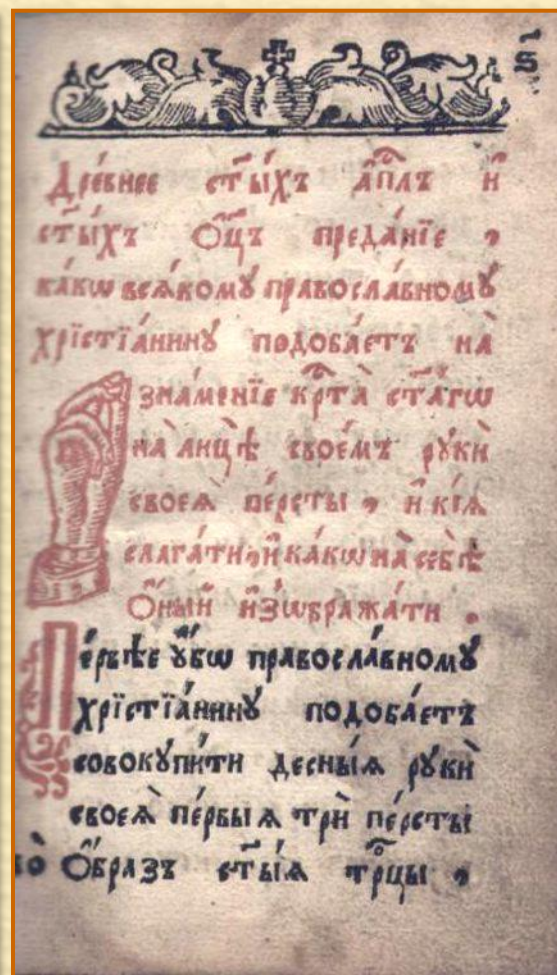 ѕ҃
Дре́внее ст҃ы́хъ а҆пⷭ҇лъ и҆
ст҃ы́хъ Ѻ҆ц҃ъ преда́нїе ,
ка́кѡ всѧ́кому правосла́вному
хрїстїа́нинꙋ подоба́етъ на
зна́менїе крⷭ҇та̀ ст҃а́гѡ
на лицѣ̀ свое́мъ рꙋкѝ
своеѧ̀ пе́рсты , и҆ кі́ѧ
слага́ти , и҆ ка́кѡ на себѣ̀
Ѻ҆́ный и҆зѡбража́ти .
Пе́рвѣе ᲂу҆́бѡ правосла́вномꙋ
хрїстїа́нинꙋ подоба́етъ
совокꙋпи́ти десны́ѧ рꙋкѝ
своеѧ̀ пе́рвыѧ трѝ пе́рсты
во̀ Ѻ҆́бразъ ст҃ы́ѧ трⷪ҇цы ,